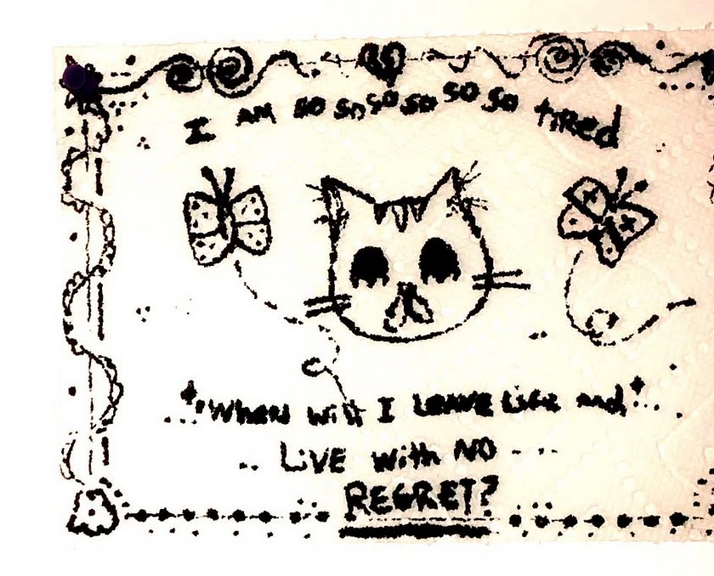 I AM SO SO SO SO SO SO tiRed
"When will I LEAVE LIFE and"
.. LiVE with NO ...
REGRET?